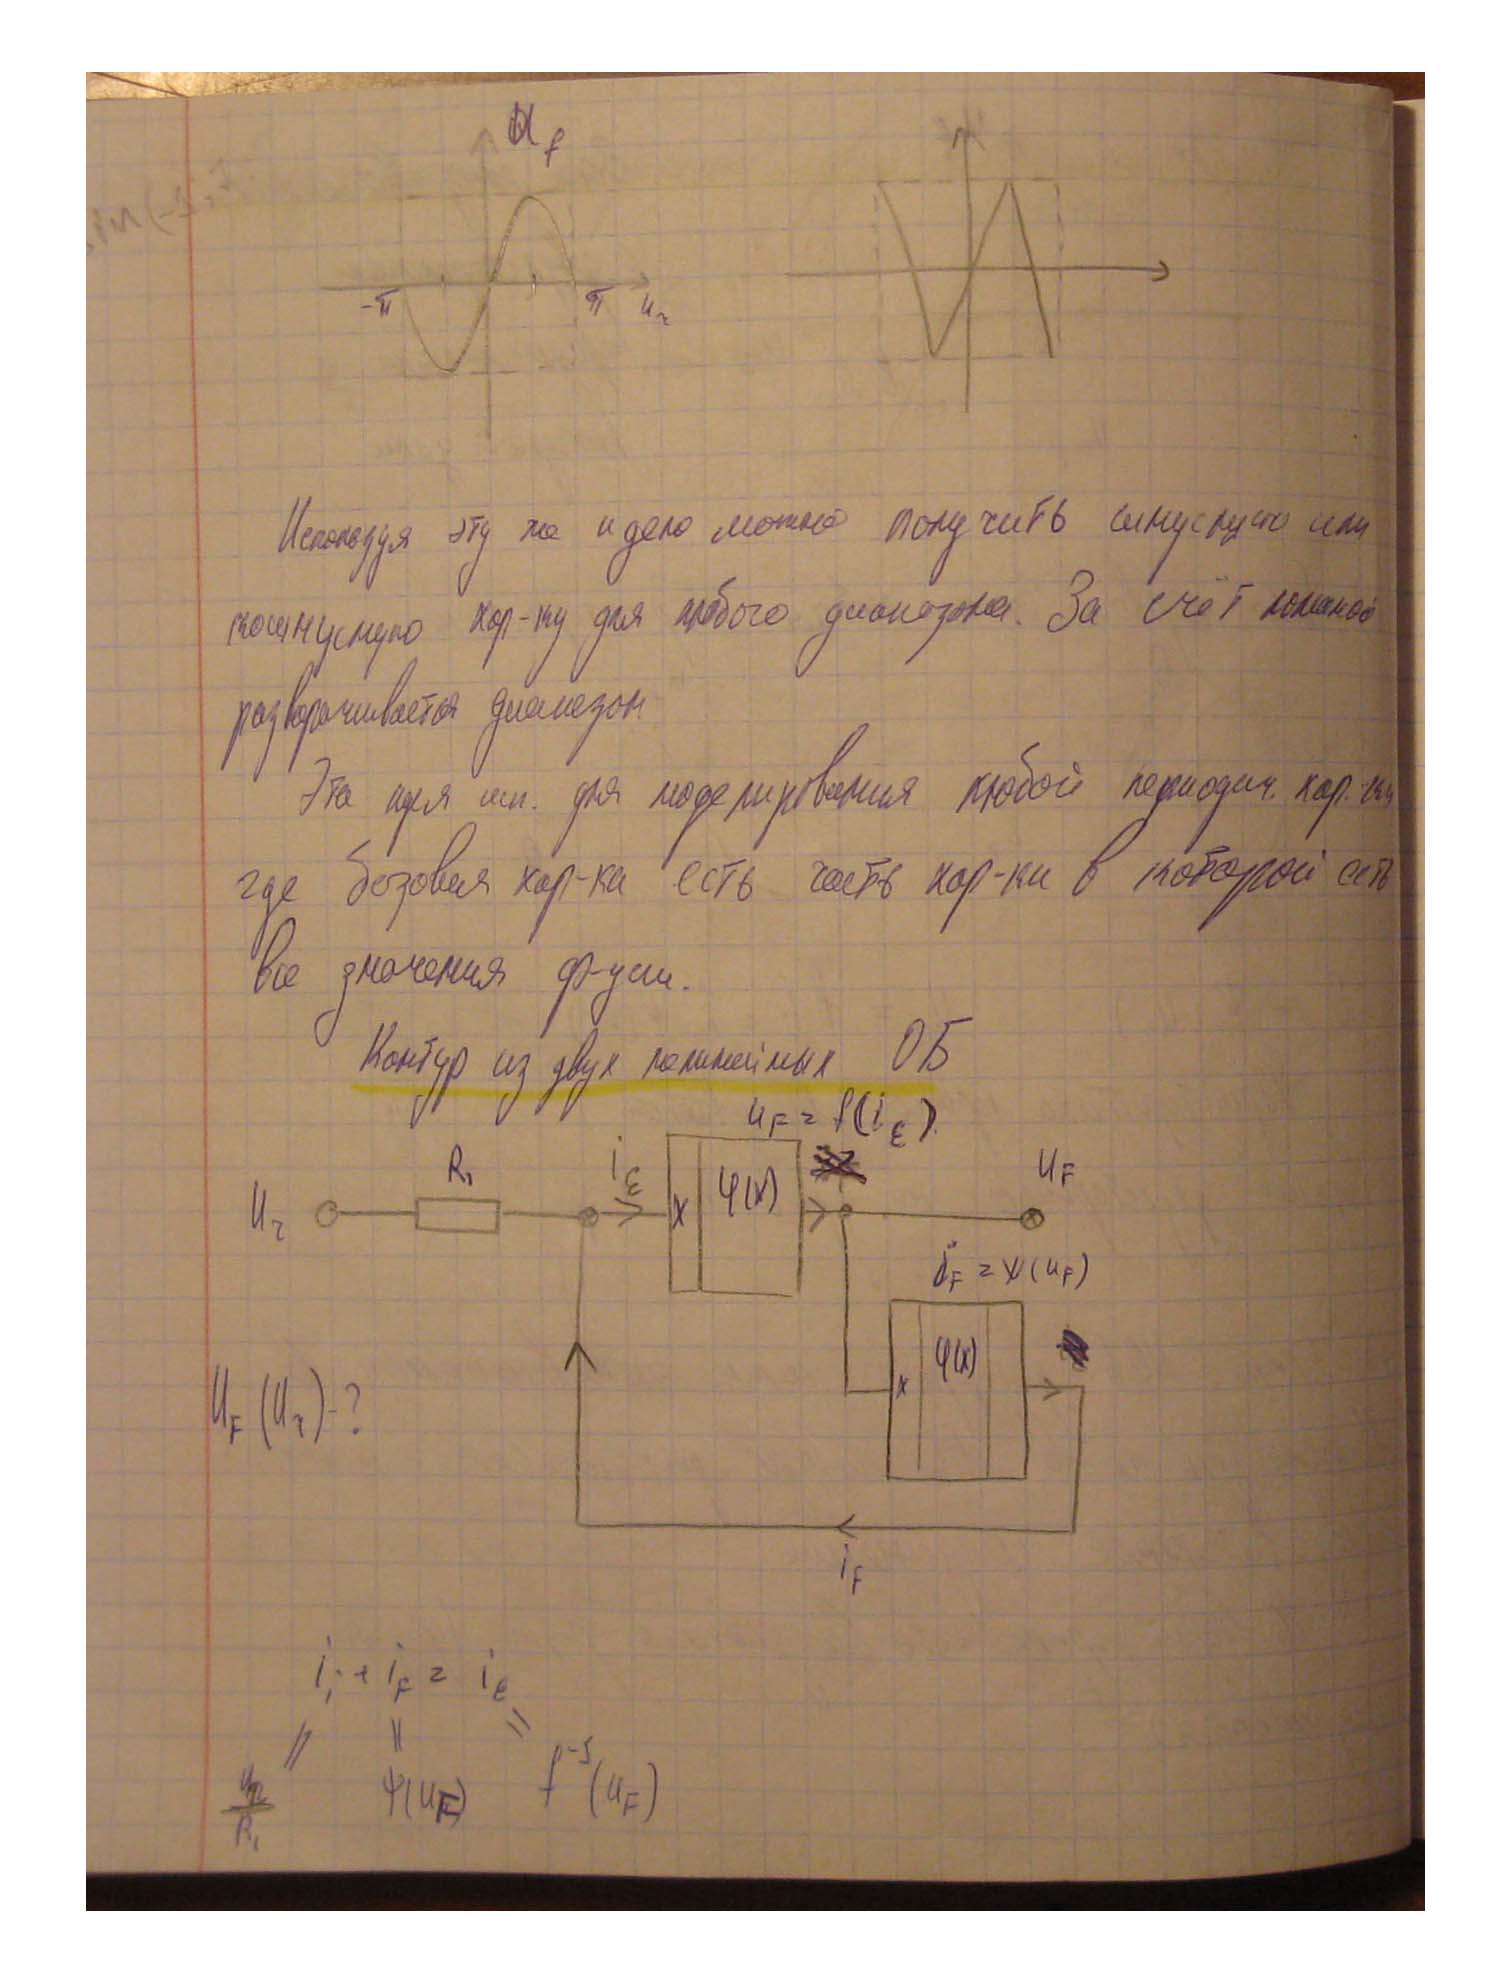 U_f
-π
π
u_r
Используя эту же идею можно получить синусную или
косинусную хар-ку для любого диапазона. За счёт ломаной
разворачивается диапазон
Эта идея исп. для моделирования любой периодич. хар-ки
где базовая хар-ка есть часть хар-ки в которой есть
все значения ф-ции.
Контур из двух нелинейных ОБ
u_F = f(i_ε)
R₁
i_ε
x
φ(x)
u_F
U_r
i_F = ψ(u_F)
x
φ(x)
U_F (U_r) - ?
i_F
i₁ + i_F = i_ε
u_r / R₁
ψ(u_F)
f⁻¹(u_F)